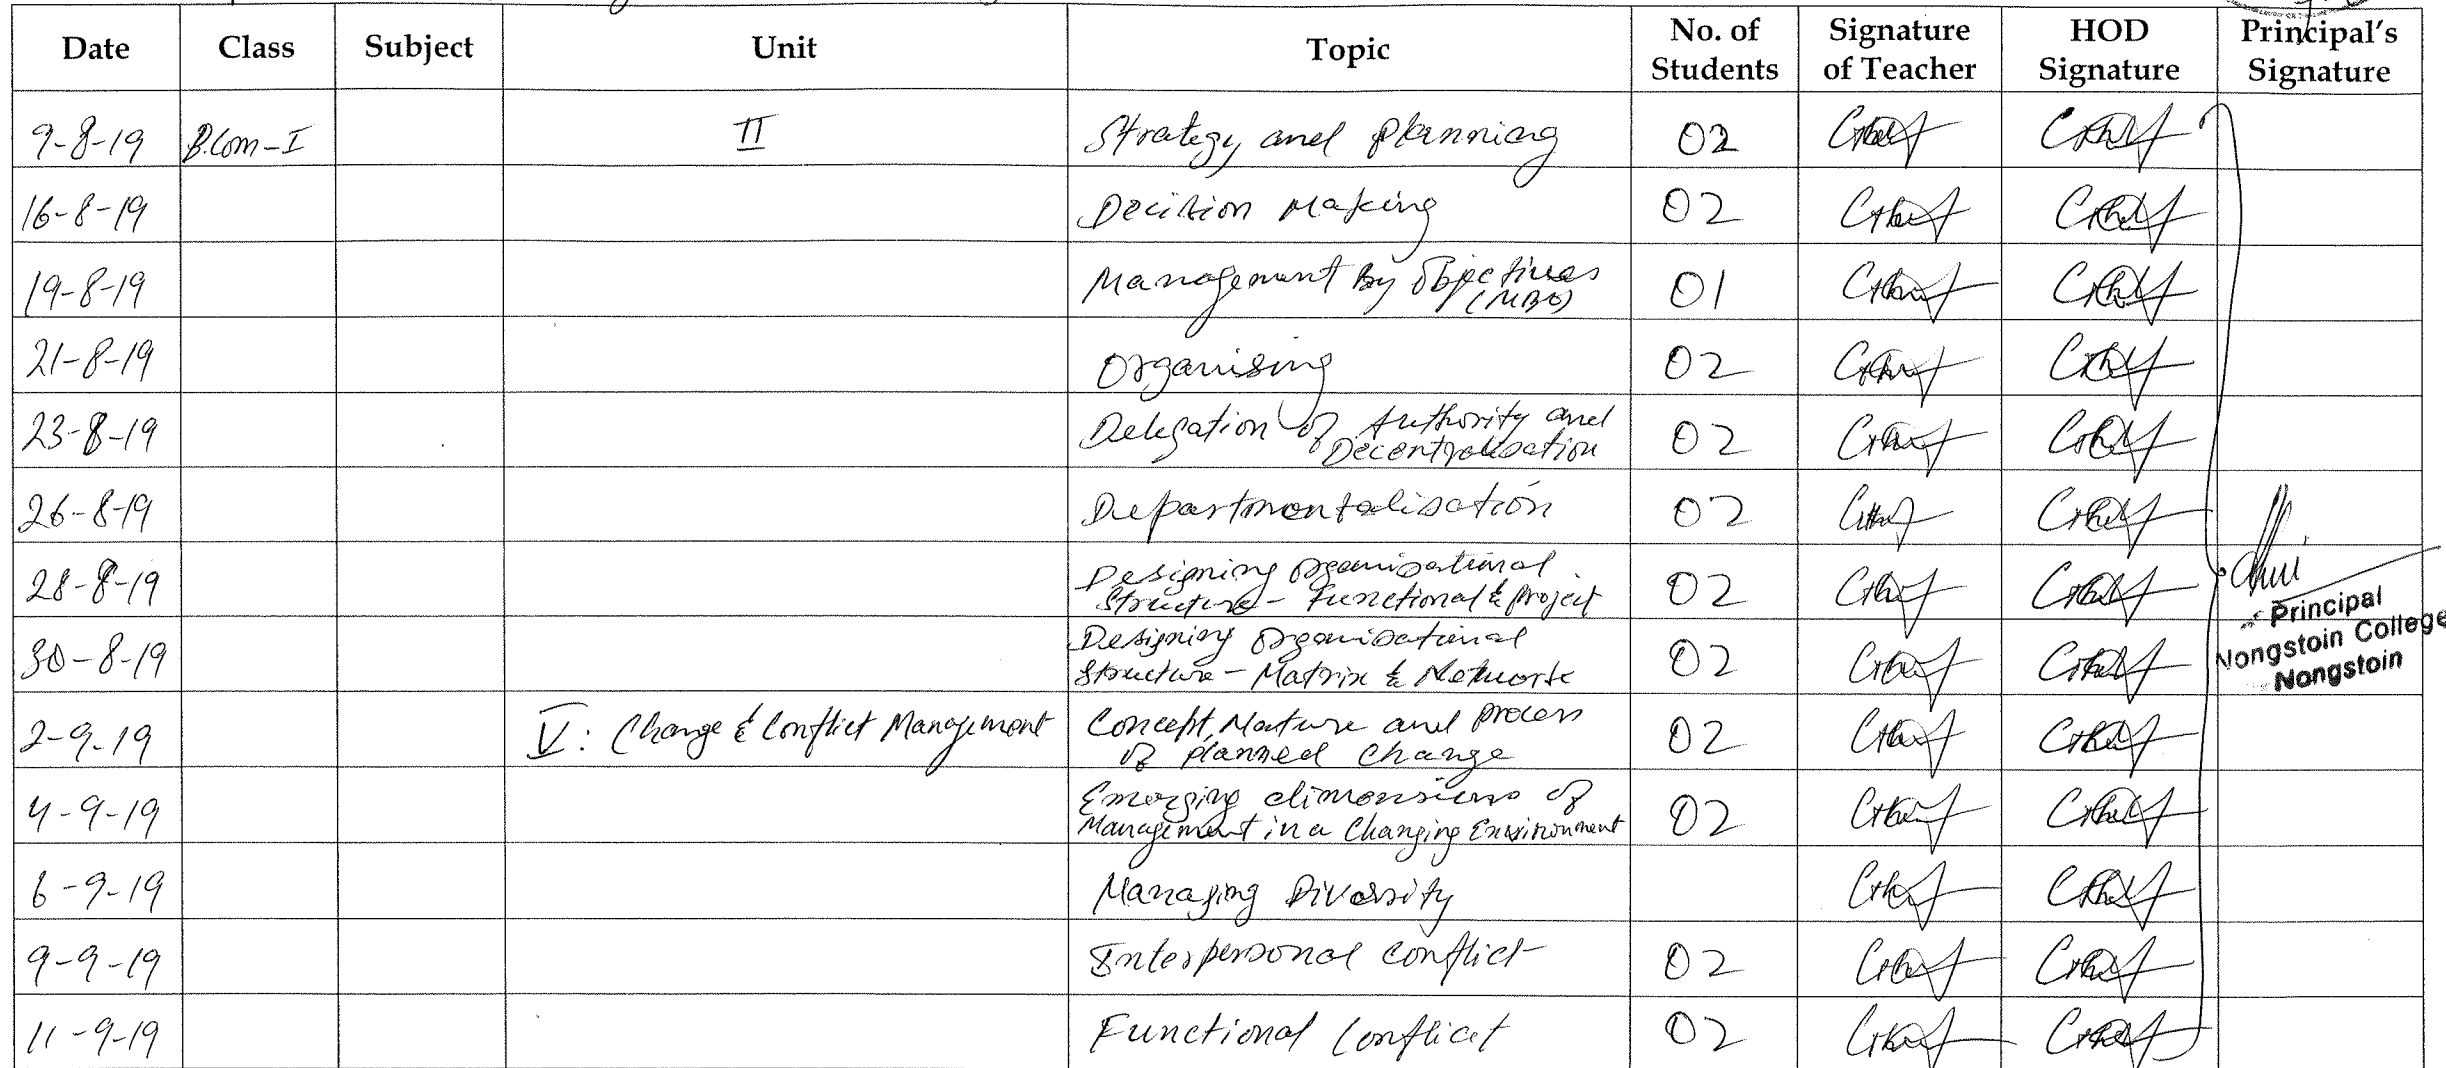 Date Class Subject Unit Topic No. of Students Signature of Teacher HOD Signature Principal's Signature
9-8-19 B.Com-I II Strategy and planning 02
16-8-19 Decision Making 02
19-8-19 Management By Objectives (MBO) 01
21-8-19 Organising 02
23-8-19 Delegation of Authority and Decentralisation 02
26-8-19 Departmentalisation 02
28-8-19 Designing Organisational Structure - Functional & Project 02
Principal
Nongstoin College
Nongstoin
30-8-19 Designing Organisational Structure - Matrix & Network 02
2-9-19 V: Change & Conflict Management Concept, Nature and process of planned change 02
4-9-19 Emerging dimensions of Management in a Changing Environment 02
6-9-19 Managing Diversity
9-9-19 Interpersonal conflict 02
11-9-19 Functional Conflict 02